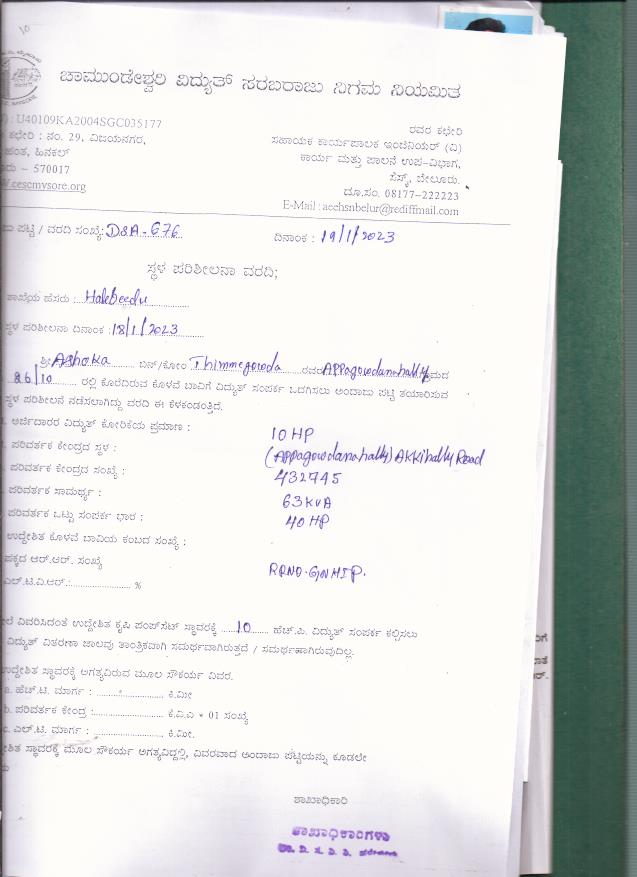 10
ಚಾಮುಂಡೇಶ್ವರಿ ವಿದ್ಯುತ್ ಸರಬರಾಜು ನಿಗಮ ನಿಯಮಿತ
: U40109KA2004SGC035177
ಕಛೇರಿ : ನಂ. 29, ವಿಜಯನಗರ,
ಹಂತ, ಹಿನಕಲ್
– 570017
www.cescmysore.org
ರವರ ಕಛೇರಿ
ಸಹಾಯಕ ಕಾರ್ಯಪಾಲಕ ಇಂಜಿನಿಯರ್ (ವಿ)
ಕಾರ್ಯ ಮತ್ತು ಪಾಲನೆ ಉಪ-ವಿಭಾಗ,
ಸೆಸ್ಕ್, ಬೇಲೂರು.
ದೂ.ಸಂ. 08177-222223
E-Mail : aeehsnbelur@rediffmail.com
ಪಟ್ಟಿ / ವರದಿ ಸಂಖ್ಯೆ: DSA-676
ದಿನಾಂಕ : 19/1/2023
ಸ್ಥಳ ಪರಿಶೀಲನಾ ವರದಿ;
ಶಾಖೆಯ ಹೆಸರು : Halebeedu
ಸ್ಥಳ ಪರಿಶೀಲನಾ ದಿನಾಂಕ : 18/1/2023
ಶ್ರೀ Ashoka ಬಿನ್/ಕೋಂ Thimmegowda ರವರ Appagowdanahally ಗ್ರಾಮದ
86/10 ರಲ್ಲಿ ಕೊರೆದಿರುವ ಕೊಳವೆ ಬಾವಿಗೆ ವಿದ್ಯುತ್ ಸಂಪರ್ಕ ಒದಗಿಸಲು ಅಂದಾಜು ಪಟ್ಟಿ ತಯಾರಿಸುವ
ಸ್ಥಳ ಪರಿಶೀಲನೆ ನಡೆಸಲಾಗಿದ್ದು ವರದಿ ಈ ಕೆಳಕಂಡಂತ್ತಿದೆ.
ಅರ್ಜಿದಾರರ ವಿದ್ಯುತ್ ಕೋರಿಕೆಯ ಪ್ರಮಾಣ : 10 HP
ಪರಿವರ್ತಕ ಕೇಂದ್ರದ ಸ್ಥಳ : (Appagowdanahally) Akkihally Road
ಪರಿವರ್ತಕ ಕೇಂದ್ರದ ಸಂಖ್ಯೆ : 432745
ಪರಿವರ್ತಕ ಸಾಮರ್ಥ್ಯ : 63 KVA
ಪರಿವರ್ತಕ ಒಟ್ಟು ಸಂಪರ್ಕ ಭಾರ : 40 HP
ಉದ್ದೇಶಿತ ಕೊಳವೆ ಬಾವಿಯ ಕಂಬದ ಸಂಖ್ಯೆ :
ಪಕ್ಕದ ಆರ್.ಆರ್. ಸಂಖ್ಯೆ RRNO-GNHIP.
ಎಲ್.ಟಿ.ವಿ.ಆರ್.: %
ವಿವರಿಸಿದಂತೆ ಉದ್ದೇಶಿತ ಕೃಷಿ ಪಂಪ್‌ಸೆಟ್ ಸ್ಥಾವರಕ್ಕೆ 10 ಹೆಚ್.ಪಿ. ವಿದ್ಯುತ್ ಸಂಪರ್ಕ ಕಲ್ಪಿಸಲು
ವಿದ್ಯುತ್ ವಿತರಣಾ ಜಾಲವು ತಾಂತ್ರಿಕವಾಗಿ ಸಮರ್ಥವಾಗಿರುತ್ತದೆ / ಸಮರ್ಥವಾಗಿರುವುದಿಲ್ಲ.
ಉದ್ದೇಶಿತ ಸ್ಥಾವರಕ್ಕೆ ಅಗತ್ಯವಿರುವ ಮೂಲ ಸೌಕರ್ಯ ವಿವರ.
a. ಹೆಚ್.ಟಿ. ಮಾರ್ಗ : ಕಿ.ಮೀ
b. ಪರಿವರ್ತಕ ಕೇಂದ್ರ : ಕೆ.ವಿ.ಎ * 01 ಸಂಖ್ಯೆ
c. ಎಲ್.ಟಿ. ಮಾರ್ಗ : ಕಿ.ಮೀ.
ಸ್ಥಾವರಕ್ಕೆ ಮೂಲ ಸೌಕರ್ಯ ಅಗತ್ಯವಿದ್ದಲ್ಲಿ, ವಿವರವಾದ ಅಂದಾಜು ಪಟ್ಟಿಯನ್ನು ಕೂಡಲೇ
ಶಾಖಾಧಿಕಾರಿ
ಶಾಖಾಧಿಕಾರಿಗಳು